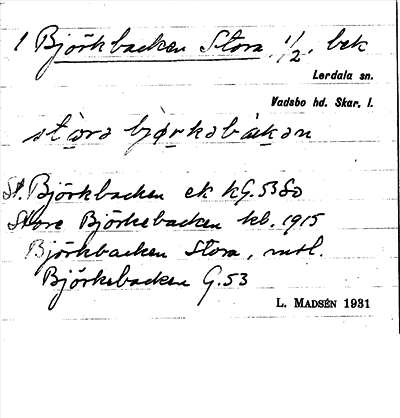 1 Björkbacken Stora, 1/2, bek
Lerdala sn.
Vadsbo hd. Skar. l.
stora björkəbakən
St. Björkbacken ek kG. 53 So
Stora Björkebacken kb. 1915
Björkbacken Stora, mtl.
Björkebacken G. 53
L. MADSÉN 1931